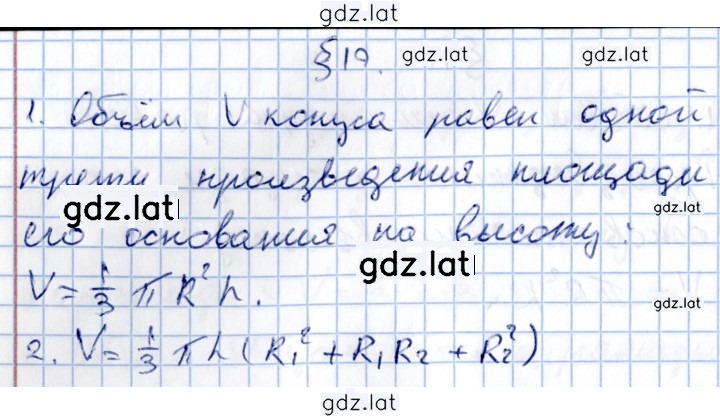 gdz.lat
§19. gdz.lat
1. Объём V конуса равен одной
трети произведения площади
gdz.lat gdz.lat
его основания на высоту:
gdz.lat
V = 1/3 π R² h. gdz.lat
2. V = 1/3 π h (R₁² + R₁ R₂ + R₂²)
gdz.lat